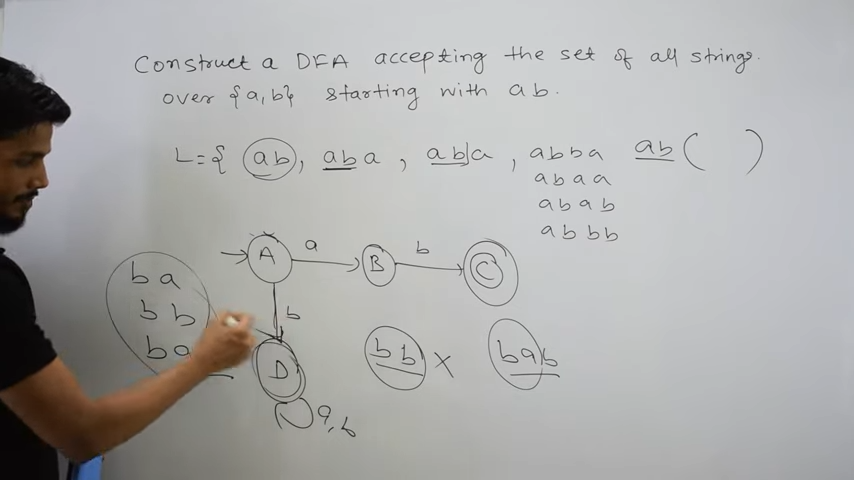 Construct a DFA accepting the set of all strings.
over {a,b} starting with ab.
L={ ab, aba, ab|a, abba ab( )
abaa
abab
abbb
A a B b C
ba
bb
ba
b
D
a,b
bb X bab